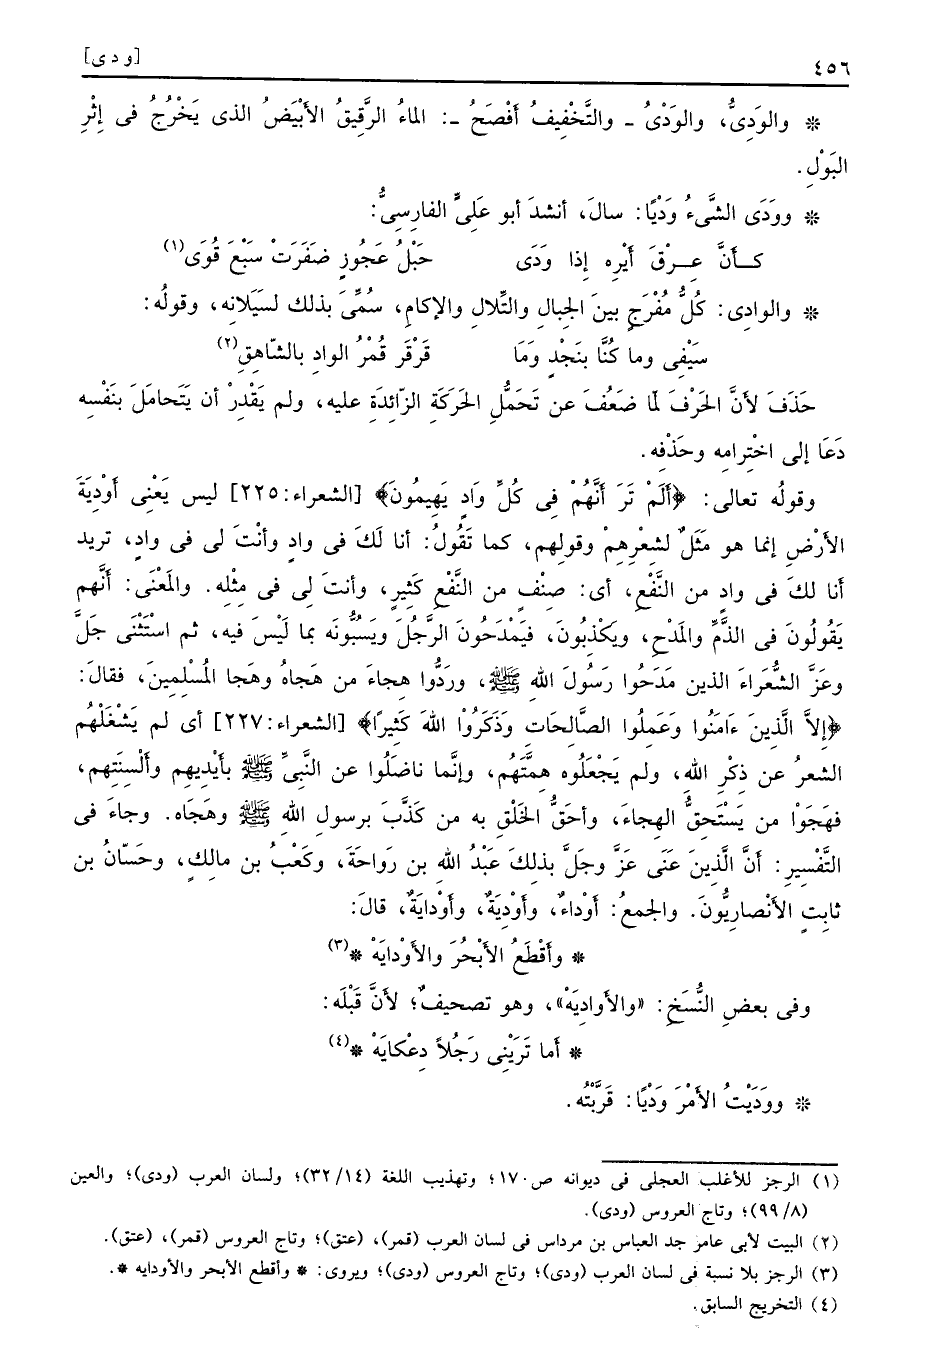 [ و د ى ]
٤٥٦
* والوَدِىُّ، والوَدْىُ ـ والتَّخْفِيفُ أفْصَحُ ـ: الماءُ الرَّقِيقُ الأبْيَضُ الذى يَخْرُجُ فى إثْرِ
البَوْلِ.
* ووَدَى الشَّىءُ وَدْيًا: سالَ، أنشدَ أبو عَلىٍّ الفارِسِىُّ:
كــأنَّ عِــرْقَ أيْرِه إذا وَدَى حَبْلُ عَجُوزٍ ضفَرَتْ سَبْعَ قُوَى(١)
* والوادِى: كُلُّ مُفْرَجٍ بينَ الجبالِ والتِّلالِ والإكامِ، سُمِّىَ بذلك لسَيَلانِه، وقولُه:
سَيْفِى وما كُنَّا بنَجْدٍ وَمَا قَرْقَر قُمْرُ الوادِ بالشّاهِقِ(٢)
حَذَفَ لأنَّ الحَرْفَ لمَّا ضَعُفَ عن تَحَمُّلِ الحَرَكَةِ الزّائدَةِ عليه، ولم يَقْدِرْ أن يَتَحامَلَ بنَفْسِه
دَعَا إلى اخْتِرامِه وحَذْفِه.
وقولُه تعالى: ﴿أَلَمْ تَرَ أَنَّهُمْ فِى كُلِّ وَادٍ يَهِيمُونَ﴾ [الشعراء:٢٢٥] ليس يَعْنِى أوْدِيَةَ
الأرْضِ إنما هو مَثَلٌ لشِعْرِهِمْ وقولِهم، كما تَقُولُ: أنا لكَ فى وادٍ وأنْتَ لى فى وادٍ، تريد
أنا لكَ فى وادٍ من النَّفْعِ، أى: صِنْفٍ من النَّفْعِ كَثِيرٍ، وأنتَ لِى فى مثْلِه. والمَعْنَى: أنَّهم
يَقُولُونَ فى الذَّمِّ والمَدْحِ، ويَكْذِبُونَ، فيَمْدَحُونَ الرَّجُلَ ويَسُبُّونَه بما لَيْسَ فيه، ثم اسْتَثْنَى جَلَّ
وعَزَّ الشُّعَراءَ الذين مَدَحُوا رَسُولَ اللهِ ﷺ، ورَدُّوا هِجاءَ من هَجاهُ وهَجا المُسْلِمينَ، فقالَ:
﴿إِلاَّ الَّذِينَ ءَامَنُوا وعَمِلُوا الصَّالِحَاتِ وَذَكَرُوْا اللهَ كَثِيرًا﴾ [الشعراء:٢٢٧] أى لم يَشْغَلْهُم
الشعرُ عن ذِكْرِ اللهِ، ولم يَجْعَلُوه هِمَّتَهُم، وإنَّما ناضَلُوا عن النَّبِىِّ ﷺ بأيْدِيهِم وألْسِنَتِهِم،
فهَجَوْا من يَسْتَحِقُّ الهِجاءَ، وأحَقُّ الخَلْقِ به من كَذَّبَ برسولِ اللهِ ﷺ وهَجَاه. وجاءَ فى
التَّفْسِيرِ: أنَّ الَّذِينَ عَنَى عَزَّ وجَلَّ بذلكَ عَبْدُ اللهِ بن رَواحَةَ، وكَعْبُ بن مالِكٍ، وحَسّانُ بن
ثابِتٍ الأنْصارِيُّونَ. والجمعُ: أوْداءٌ، وأوْدِيَةٌ، وأوْدايَةٌ، قالَ:
* وأقْطَعُ الأبْحُرَ والأوْدايَهْ *(٣)
وفى بعضِ النُّسَخِ: «والأوادِيَهْ»، وهو تصحيفٌ؛ لأنَّ قَبْلَه:
* أما تَرَيْنِى رَجُلاً دِعْكايَهْ *(٤)
* ووَدَيْتُ الأمْرَ وَدْيًا: قَرَّبْتُه.
(١) الرجز للأغلب العجلى فى ديوانه ص١٧٠؛ وتهذيب اللغة (٣٢/١٤)؛ ولسان العرب (ودى)؛ والعين
(٩٩/٨)؛ وتاج العروس (ودى).
(٢) البيت لأبى عامر جد العباس بن مرداس فى لسان العرب (قمر)، (عتق)؛ وتاج العروس (قمر)، (عتق).
(٣) الرجز بلا نسبة فى لسان العرب (ودى)؛ وتاج العروس (ودى)؛ ويروى: * وأقطع الأبحر والأودايه *.
(٤) التخريج السابق.